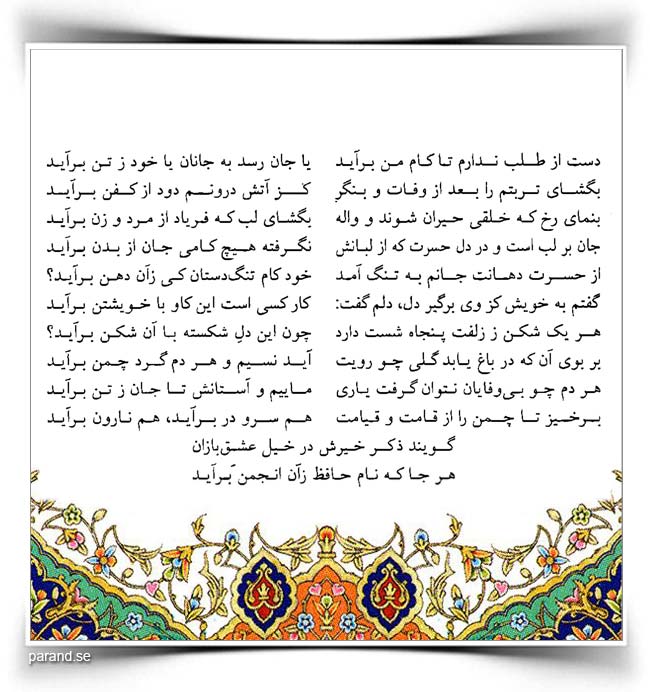 دست از طلب ندارم تا کام من برآید یا جان رسد به جانان یا خود ز تن برآید
بگشای تربتم را بعد از وفات و بنگر کز آتش درونم دود از کفن برآید
بنمای رخ که خلقی حیران شوند و واله بگشای لب که فریاد از مرد و زن برآید
جان بر لب است و در دل حسرت که از لبانش نگرفته هیچ کامی جان از بدن برآید
از حسرت دهانت جانم به تنگ آمد خود کام تنگ‌دستان کی زآن دهن برآید؟
گفتم به خویش کز وی برگیر دل، دلم گفت: کار کسی است این کاو با خویشتن برآید
هر یک شکن ز زلفت پنجاه شست دارد چون این دلِ شکسته با آن شکن برآید؟
بر بوی آن که در باغ یابد گلی چو رویت آید نسیم و هر دم گرد چمن برآید
هر دم چو بی‌وفایان نتوان گرفت یاری ماییم و آستانش تا جان ز تن برآید
برخیز تا چمن را از قامت و قیامت هم سرو در برآید، هم نارون برآید
گویند ذکر خیرش در خیل عشق‌بازان
هر جا که نام حافظ زآن انجمن برآید
parand.se